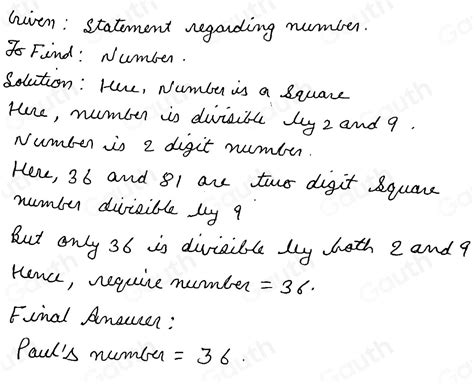 Given: Statement regarding number.
To Find: Number.
Solution: Here, Number is a Square
Here, number is divisible by 2 and 9.
Number is 2 digit number.
Here, 36 and 81 are two digit Square
number divisible by 9
But only 36 is divisible by both 2 and 9
Hence, require number = 36.
Final Answer:
Paul's number = 36.